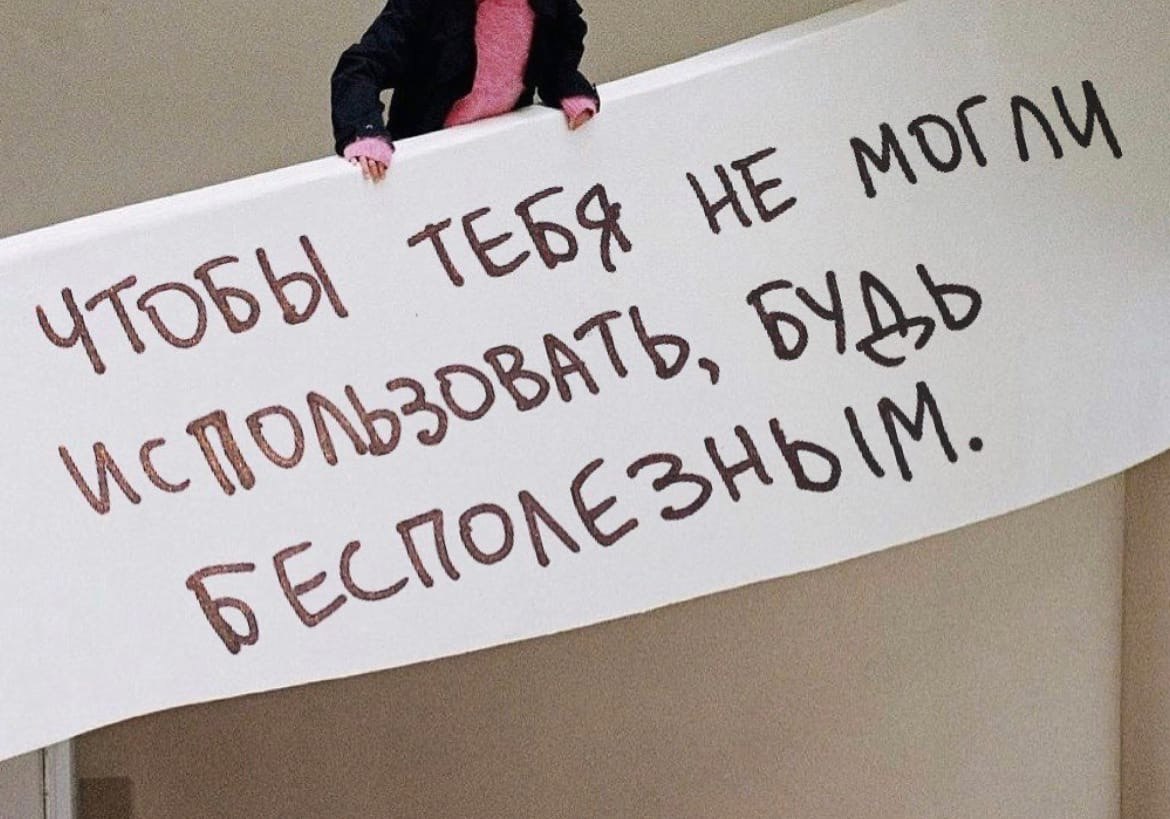 ЧТОБЫ ТЕБЯ НЕ МОГЛИ
ИСПОЛЬЗОВАТЬ, БУДЬ
БЕСПОЛЕЗНЫМ.